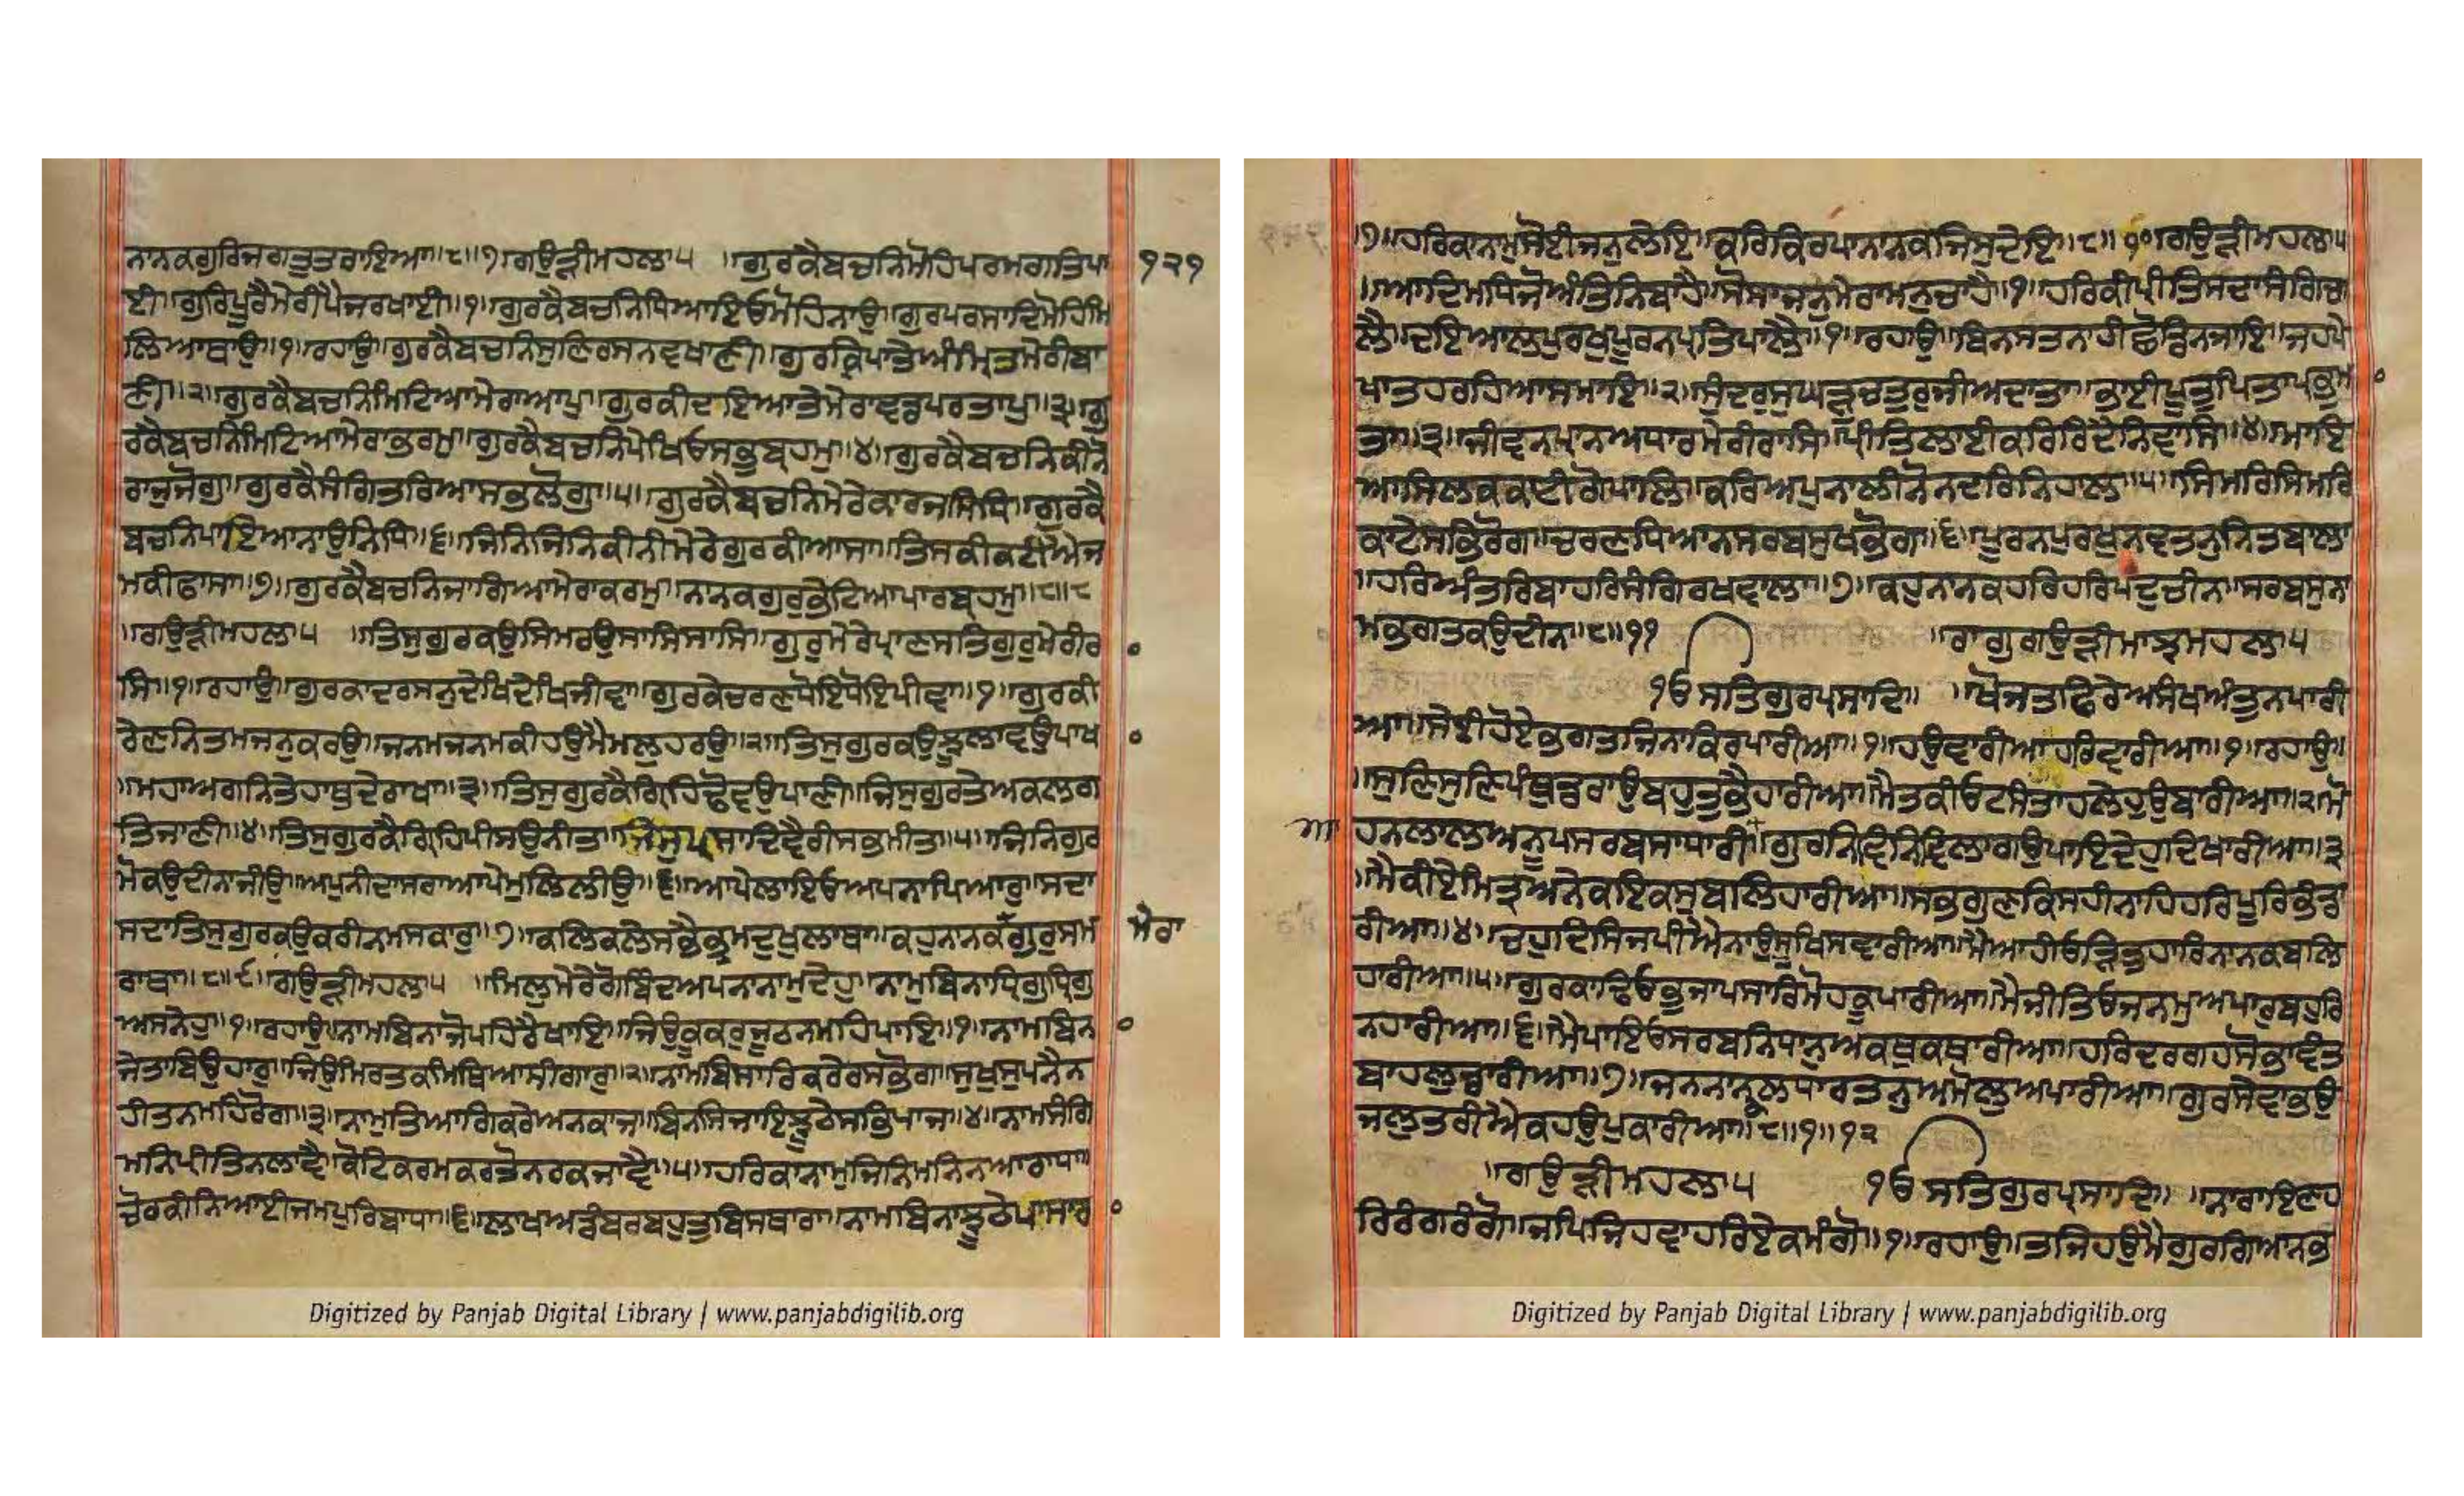 ਨਾਨਕਗੁਰਿਜਗਤੁਤਰਾਇਆ॥੮॥੭॥ਗਉੜੀਮਹਲਾ੫ ॥ਗੁਰਕੈਬਚਨਿਮੋਹਿਪਰਮਗਤਿਪਾ ੧੨੧
ਈ॥ਗੁਰਿਪੂਰੈਮੇਰੀਪੈਜਰਖਾਈ॥੧॥ਗੁਰਕੈਬਚਨਿਧਿਆਇਓਮੋਹਿਨਾਉ॥ਗੁਰਪਰਸਾਦਿਮੋਹਿਮਿ
ਲਿਆਥਾਉ॥੧॥ਰਹਾਉ॥ਗੁਰਕੈਬਚਨਿਸੁਣਿਰਸਨਵਖਾਣੀ॥ਗੁਰਕਿਪਾਤੇਅੰਮ੍ਰਿਤਮੇਰੀਬਾ
ਣੀ॥੨॥ਗੁਰਕੈਬਚਨਿਮਿਟਿਆਮੇਰਾਆਪੁ॥ਗੁਰਕੀਦਇਆਤੇਮੇਰਾਵਡਪਰਤਾਪੁ॥੩॥ਗੁ
ਰਕੈਬਚਨਿਮਿਟਿਆਮੇਰਾਭਰਮੁ॥ਗੁਰਕੈਬਚਨਿਪੇਖਿਓਸਭੁਬ੍ਰਹਮੁ॥੪॥ਗੁਰਕੈਬਚਨਿਕੀਨੋ
ਰਾਜੁਜੋਗੁ॥ਗੁਰਕੈਸੰਗਿਤਰਿਆਸਭੁਲੋਗੁ॥੫॥ਗੁਰਕੈਬਚਨਿਮੇਰੇਕਾਰਜਸਿਧਿ॥ਗੁਰਕੈ
ਬਚਨਿਪਾਇਆਨਾਉਨਿਧਿ॥੬॥ਜਿਨਿਜਿਨਿਕੀਨੀਮੇਰੇਗੁਰਕੀਆਸਾ॥ਤਿਸਕੀਕਟੀਐਜ
ਮਕੀਫਾਸਾ॥੭॥ਗੁਰਕੈਬਚਨਿਜਾਗਿਆਮੇਰਾਕਰਮੁ॥ਨਾਨਕਗੁਰੁਭੇਟਿਆਪਾਰਬ੍ਰਹਮੁ॥੮॥੮
॥ਗਉੜੀਮਹਲਾ੫ ॥ਤਿਸੁਗੁਰਕਉਸਿਮਰਉਸਾਸਿਸਾਸਿ॥ਗੁਰੁਮੇਰੇਪ੍ਰਾਣਸਤਿਗੁਰੁਮੇਰੀਰ
ਸਿ॥੧॥ਰਹਾਉ॥ਗੁਰਕਾਦਰਸਨੁਦੇਖਿਦੇਖਿਜੀਵਾ॥ਗੁਰਕੇਚਰਣਧੋਇਧੋਇਪੀਵਾ॥੧॥ਗੁਰਕੀ
ਰੇਣਨਿਤਮਜਨੁਕਰਉ॥ਜਨਮਜਨਮਕੀਹਉਮੈਮਲੁਹਰਉ॥੨॥ਤਿਸੁਗੁਰਕਉਝੂਲਾਵਉਪਾਖ
॥ਮਹਾਅਗਨਿਤੇਹਾਥੁਦੇਰਾਖਾ॥੩॥ਤਿਸੁਗੁਰਕੈਗ੍ਰਿਹਿਢੋਵਉਪਾਣੀ॥ਜਿਸੁਗੁਰਤੇਅਕਲਗ
ਤਿਜਾਣੀ॥੪॥ਤਿਸੁਗੁਰਕੈਗ੍ਰਿਹਿਪੀਸਉਨੀਤਾ॥ਜਿਸੁਪ੍ਰਸਾਦਿਵੈਰੀਸਭਮੀਤਾ॥੫॥ਜਿਨਿਗੁਰ
ਮੋਕਉਦੀਨਾਜੀਉ॥ਅਪੁਨੀਦਾਸਰਾਆਪੇਮੁਲਿਲੀਉ॥੬॥ਆਪੇਲਾਇਓਅਪਨਾਪਿਆਰੁ॥ਸਦਾ
ਸਦਾਤਿਸੁਗੁਰਕਉਕਰੀਨਮਸਕਾਰੁ॥੭॥ਕਲਿਕਲੇਸਭੈਭ੍ਰਮਦੁਖੁਲਾਥਾ॥ਕਹੁਨਾਨਕਗੁਰੁਸਮ ਮੇਰਾ
ਰਾਥਾ॥੮॥੯॥ਗਉੜੀਮਹਲਾ੫ ॥ਮਿਲੁਮੇਰੇਗੋਬਿੰਦਅਪਨਾਨਾਮੁਦੇਹੁ॥ਨਾਮੁਬਿਨਾਧ੍ਰਿਗੁਧ੍ਰਿਗੁ
ਅਸਨੇਹੁ॥੧॥ਰਹਾਉ॥ਨਾਮਬਿਨਾਜੋਪਹਿਰੈਖਾਇ॥ਜਿਉਕੂਕਰੁਜੂਠਨਮਹਿਪਾਇ॥੧॥ਨਾਮਬਿਨ
ਜੇਤਾਬਿਉਹਾਰੁ॥ਜਿਉਮਿਰਤਕਮਿਥਿਆਸੀਗਾਰੁ॥੨॥ਨਾਮਬਿਸਾਰਿਕਰੇਰਸਭੋਗ॥ਸੁਖੁਸੁਪਨੈਨ
ਹੀਤਨਮਹਿਰੋਗ॥੩॥ਨਾਮੁਤਿਆਗਿਕਰੇਅਨਕਾਜ॥ਬਿਨਸਿਜਾਇਝੂਠੇਸਭਿਪਾਜ॥੪॥ਨਾਮਸੰਗਿ
ਮਨਿਪ੍ਰੀਤਿਨਲਾਵੈ॥ਕੋਟਿਕਰਮਕਰਤੋਨਰਕਜਾਵੈ॥੫॥ਹਰਿਕਾਨਾਮੁਜਿਨਿਮਨਿਨਆਰਾਧਾ॥
ਚੋਰਕੀਨਿਆਈਜਮਪੁਰਿਬਾਧਾ॥੬॥ਲਾਖਅਡੰਬਰਬਹੁਤੁਬਿਸਥਾਰਾ॥ਨਾਮਬਿਨਾਝੂਠੇਪਾਸਾਰ
੭॥ਹਰਿਕਾਨਾਮੁਸੋਈਜਨੁਲੇਇ॥ਕਰਿਕਿਰਪਾਨਾਨਕਜਿਸੁਦੇਇ॥੮॥੧੦॥ਗਉੜੀਮਹਲਾ੫
॥ਆਦਿਮਧਿਜੋਅੰਤਿਨਿਬਾਹੈ॥ਸੋਸਾਜਨੁਮੇਰਾਮਨੁਚਾਹੈ॥੧॥ਹਰਿਕੀਪ੍ਰੀਤਿਸਦਾਸੰਗਿਚਾ
ਲੈ॥ਦਇਆਲਪੁਰਖਪੂਰਨਪ੍ਰਤਿਪਾਲੈ॥੧॥ਰਹਾਉ॥ਬਿਨਸਤਨਾਹੀਛੋਡਿਨਜਾਇ॥ਜਹਪੇ
ਖਾਤਹਰਹਿਆਸਮਾਇ॥੨॥ਸੁੰਦਰੁਸੁਘੜੁਚਤੁਰੁਜੀਅਦਾਤਾ॥ਭਾਈਪੂਤੁਪਿਤਾਪ੍ਰਭੁਮਾ
ਤਾ॥੩॥ਜੀਵਨਪ੍ਰਾਨਅਧਾਰਮੇਰੀਰਾਸਿ॥ਪ੍ਰੀਤਿਲਾਈਕਰਿਰਿਦੈਨਿਵਾਸਿ॥੪॥ਮਾਇ
ਆਸਿਲਕਕਾਟੀਗੋਪਾਲਿ॥ਕਰਿਅਪੁਨਾਲੀਨੋਨਦਰਿਨਿਹਾਲ॥੫॥ਸਿਮਰਿਸਿਮਰਿ
ਕਾਟੇਸਭਿਰੋਗ॥ਚਰਣਧਿਆਨਸਰਬਸੁਖਭੋਗ॥੬॥ਪੂਰਨਪੁਰਖੁਨਵਤਨੁਨਿਤਬਾਲਾ
॥ਹਰਿਅੰਤਰਿਬਾਹਰਿਸੰਗਿਰਖਵਾਲਾ॥੭॥ਕਹੁਨਾਨਕਹਰਿਹਰਿਪਦੁਚੀਨ॥ਸਰਬਸੁਨਾ
ਮਭਗਤਕਉਦੀਨ॥੮॥੧੧ ॥ਰਾਗੁਗਉੜੀਮਾਝਮਹਲਾ੫
ੴਸਤਿਗੁਰਪ੍ਰਸਾਦਿ॥ ॥ਖੋਜਤਫਿਰੇਅਸੰਖਅੰਤੁਨਪਾਰੀ
ਆ॥ਸੇਈਹੋਏਭਗਤਜਿਨਾਕਿਰਪਾਰੀਆ॥੧॥ਹਉਵਾਰੀਆਹਰਿਵਾਰੀਆ॥੧॥ਰਹਾਉ॥
॥ਸੁਣਿਸੁਣਿਪੰਥੁਡਰਾਉਬਹੁਤੁਭੈਹਾਰੀਆ॥ਮੈਤਕੀਓਟਸੰਤਾਹਲੇਹੁਉਬਾਰੀਆ॥੨॥ਮੋ
ਹਨਲਾਲਅਨੂਪਸਰਬਸਾਧਾਰੀ॥ਗੁਰਨਿਵਿਨਿਵਿਲਾਗਉਪਾਇਦੇਹੁਦਿਖਾਰੀਆ॥੩
॥ਮੈਕੀਏਮਿਤ੍ਰਅਨੇਕਇਕਸੁਬਲਿਹਾਰੀਆ॥ਸਭਗੁਣਕਿਸਹੀਨਾਹਿਹਰਿਪੂਰਿਭੰਡਾ
ਰੀਆ॥੪॥ਚਹੁਦਿਸਿਜਪੀਐਨਾਉਸੂਖਿਸਵਾਰੀਆ॥ਮੈਆਹੀਓੜਿਤੁਹਾਰਿਨਾਨਕਬਲਿ
ਹਾਰੀਆ॥੫॥ਗੁਰਕਾਢਿਓਭੁਜਾਪਸਾਰਿਮੋਹਕੂਪਾਰੀਆ॥ਮੈਜੀਤਿਓਜਨਮੁਅਪਾਰੁਬਹੁਰਿ
ਨਹਾਰੀਆ॥੬॥ਮੈਪਾਇਓਸਰਬਨਿਧਾਨੁਅਕਥੁਕਥਾਰੀਆ॥ਹਰਿਦਰਗਹਸੋਭਾਵੰਤ
ਬਾਹਲੁਡਾਰੀਆ॥੭॥ਜਨਨਾਨਕਲਧਾਰਤਨੁਅਮੋਲੁਅਪਾਰੀਆ॥ਗੁਰਸੇਵਾਭਉ
ਜਲੁਤਰੀਐਕਹਉਪੁਕਾਰੀਆ॥੮॥੧॥੧੨
॥ਗਉੜੀਮਹਲਾ੫ ੴਸਤਿਗੁਰਪ੍ਰਸਾਦਿ॥ ॥ਨਾਰਾਇਣਹ
ਰਿਰੰਗਰੰਗੋ॥ਜਪਿਜਿਹਵਾਹਰਿਏਕਮੰਗੋ॥੧॥ਰਹਾਉ॥ਤਜਿਹਉਮੈਗੁਰਗਿਆਨਭ
Digitized by Panjab Digital Library | www.panjabdigilib.org
Digitized by Panjab Digital Library | www.panjabdigilib.org